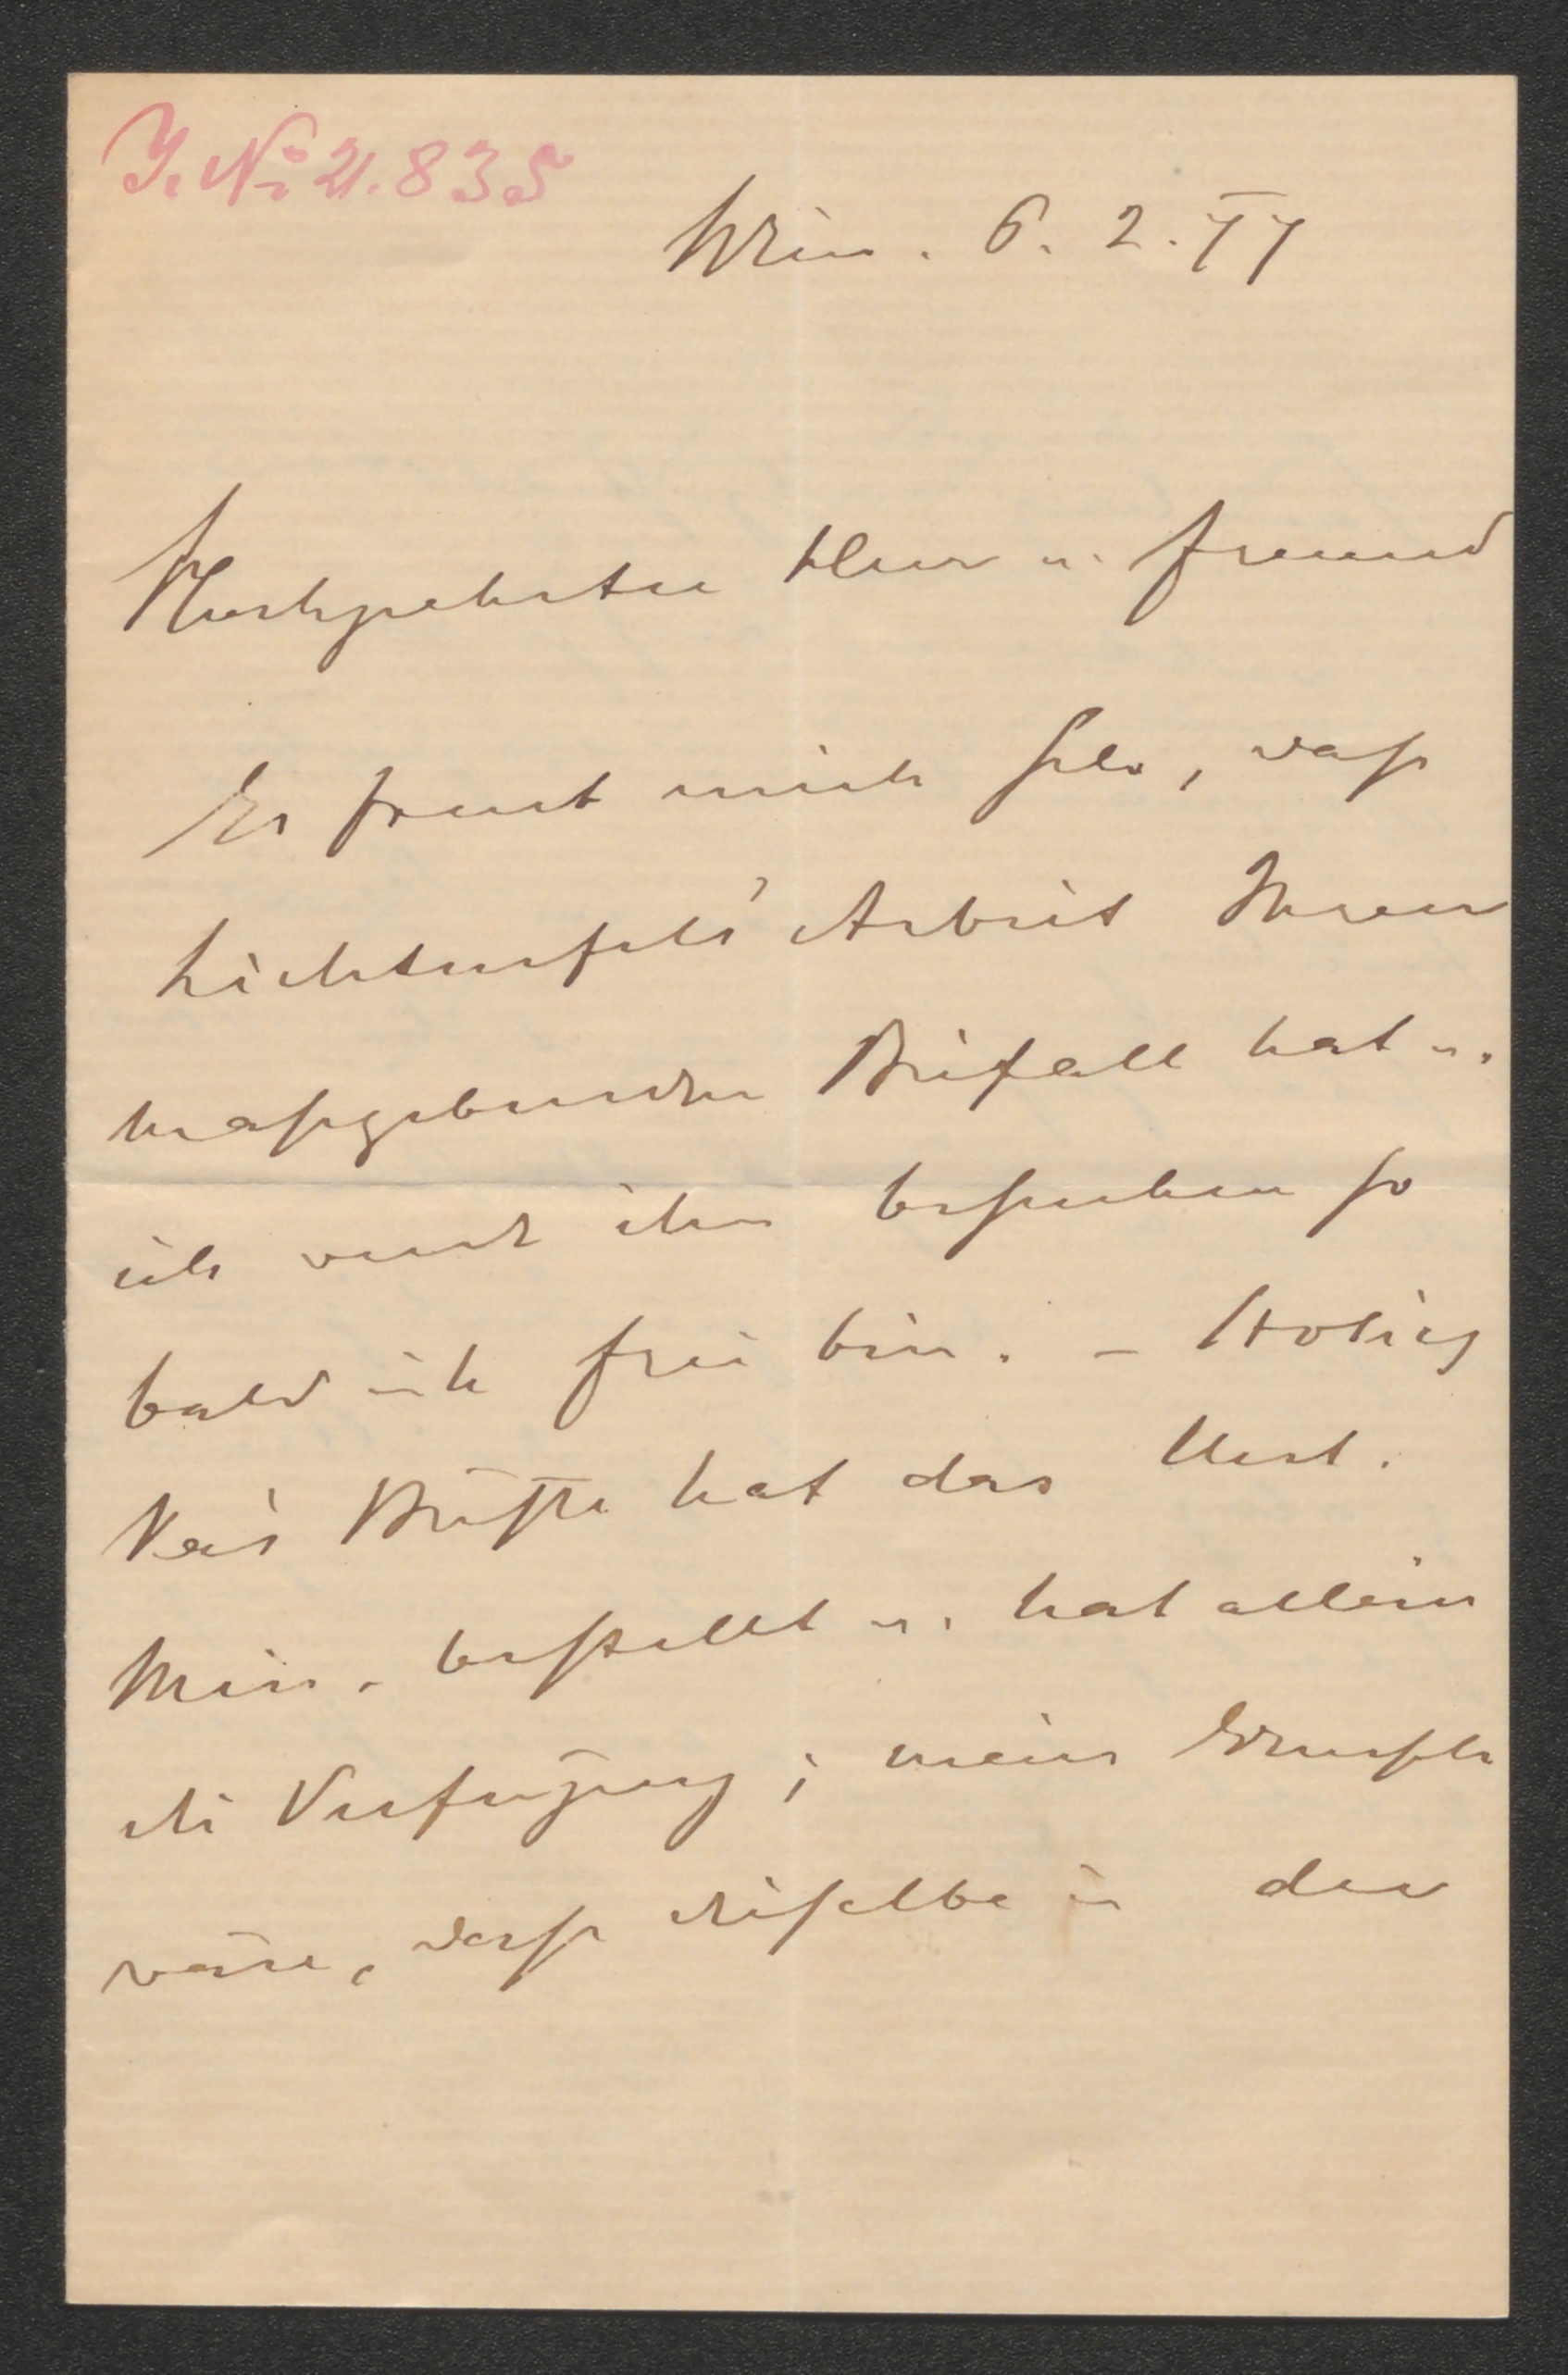 J. No 21.835
Wien. 6. 2. 77
Hochgeehrter Herr u. Freund
Es freut mich sehr, dass
Lichtenfels' Arbeit Ihren
massgebenden Beifall hat u.
ich werde ihn besuchen so
bald ich frei bin. –
Büste hat das Unt.
Min. bestellt u. hat allein
die Verfügung; mein Wunsch
wäre, dass dieselbe in der